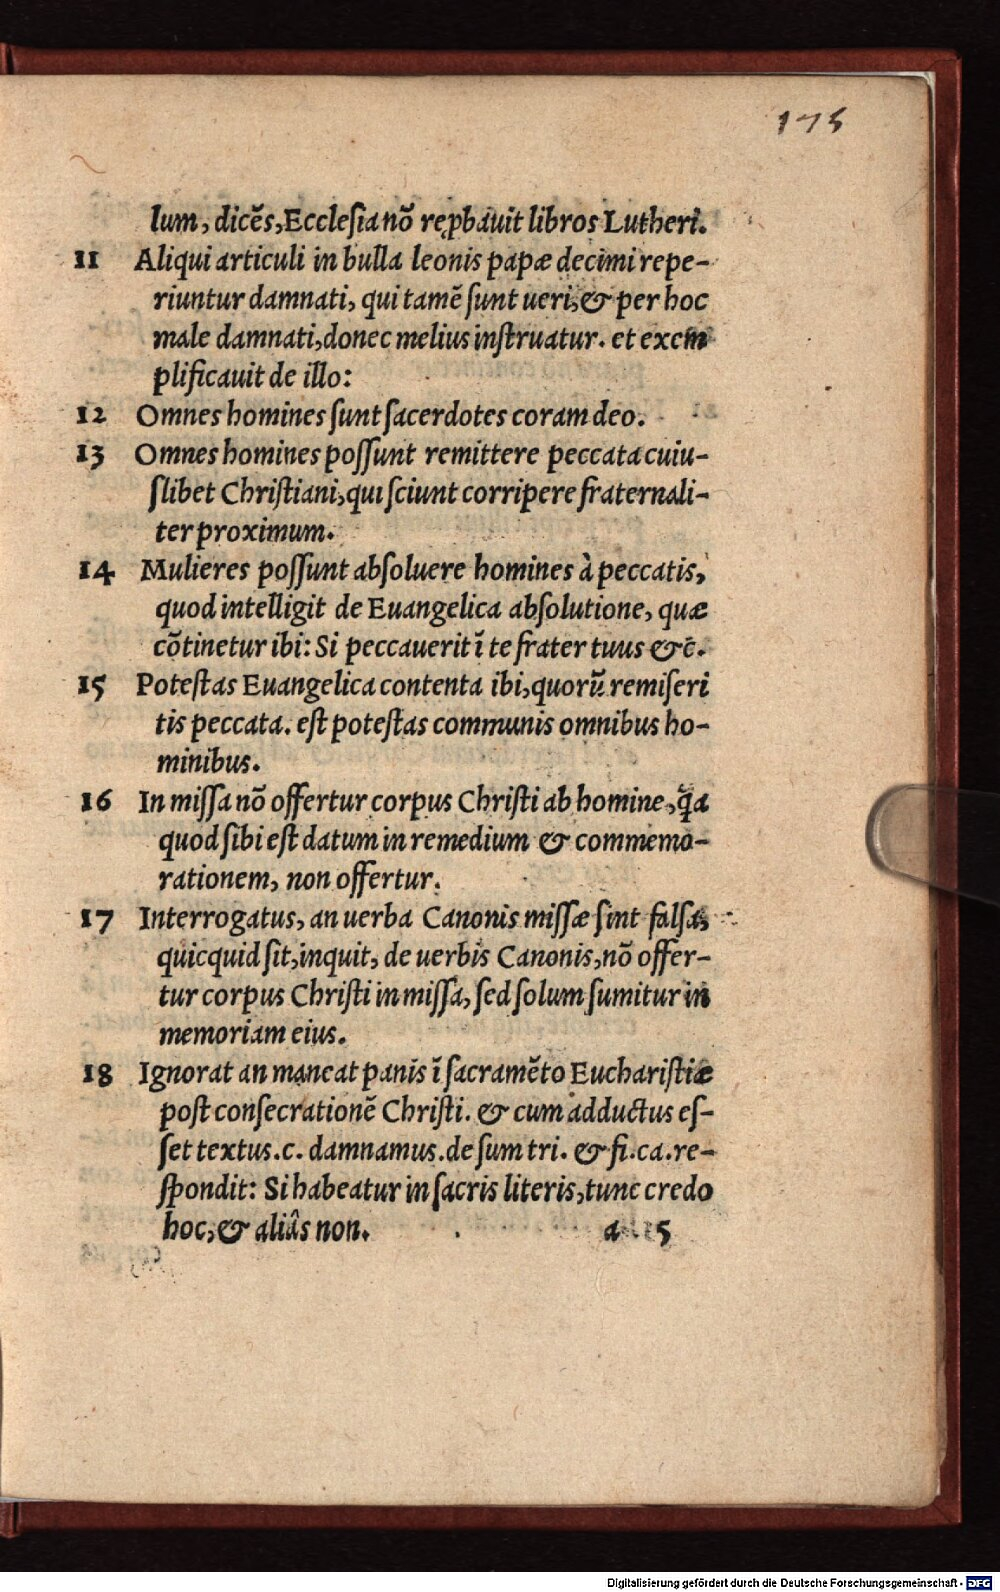 175
lum, dicẽs, Ecclesia nõ rep̱bauit libros Lutheri.
11 Aliqui articuli in bulla leonis papæ decimi repe-
riuntur damnati, qui tamẽ sunt ueri, & per hoc
male damnati, donec melius instruatur. et exem
plificauit de illo:
12 Omnes homines sunt sacerdotes coram deo.
13 Omnes homines possunt remittere peccata cuiu-
slibet Christiani, qui sciunt corripere fraternali-
ter proximum.
14 Mulieres possunt absoluere homines à peccatis,
quod intelligit de Euangelica absolutione, quæ
cõtinetur ibi: Si peccauerit ĩ te frater tuus &c̃.
15 Potestas Euangelica contenta ibi, quorũ remiseri
tis peccata. est potestas communis omnibus ho-
minibus.
16 In missa nõ offertur corpus Christi ab homine, q̃a
quod sibi est datum in remedium & commemo-
rationem, non offertur.
17 Interrogatus, an uerba Canonis missæ sint falsa,
quicquid sit, inquit, de uerbis Canonis, nõ offer-
tur corpus Christi in missa, sed solum sumitur in
memoriam eius.
18 Ignorat an maneat panis ĩ sacramẽto Eucharistiæ
post consecrationẽ Christi. & cum adductus es-
set textus .c. damnamus. de sum tri. & fi. ca. re-
spondit: Si habeatur in sacris literis, tunc credo
hoc, & aliâs non.
a 5
Digitalisierung gefördert durch die Deutsche Forschungsgemeinschaft - DFG